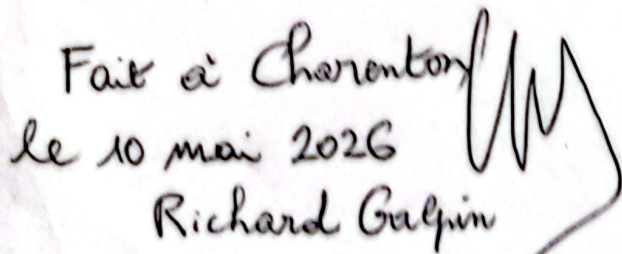 Fait à Charenton
le 10 mai 2026
Richard Galpin